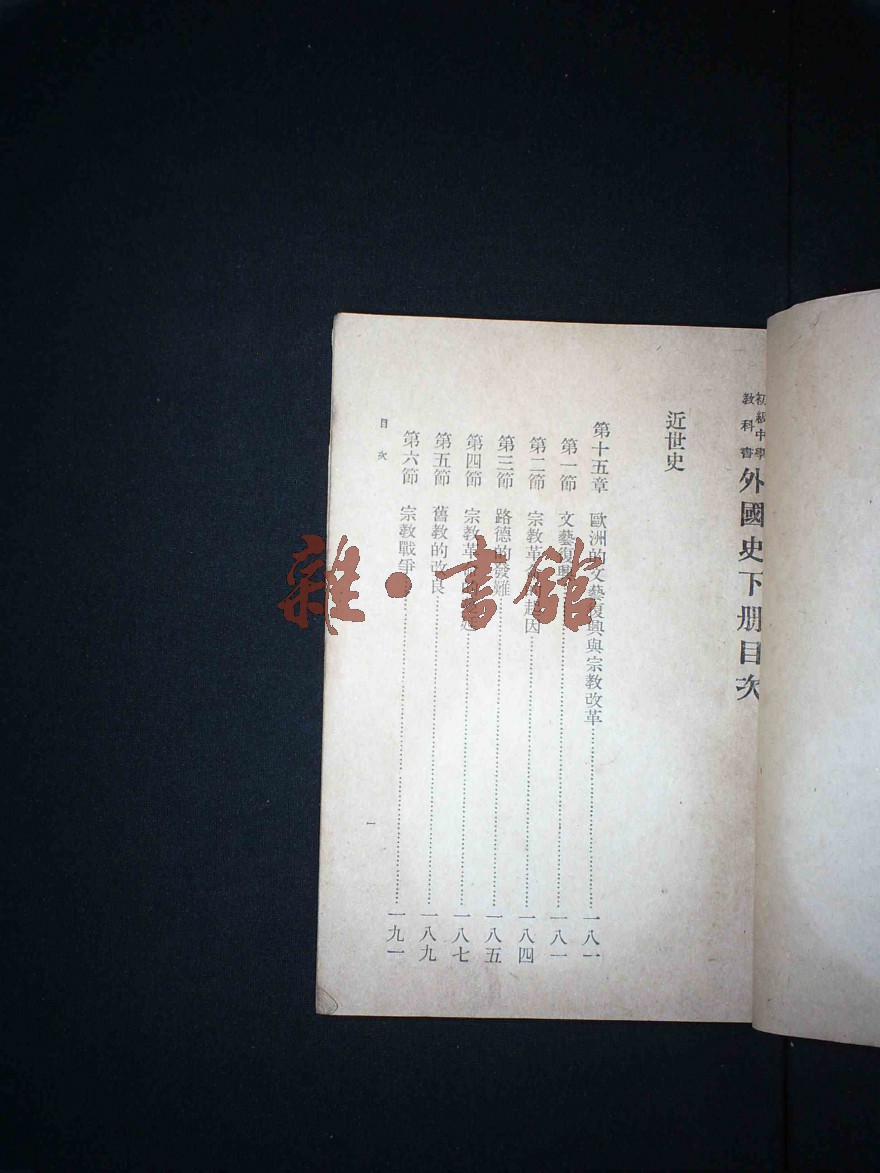 初級中學
教科書
外國史下册目次
近世史
第十五章 歐洲的文藝復興與宗教改革……一八一
第一節 文藝復興……一八一
第二節 宗教革命的起因……一八四
第三節 路德的發難……一八五
第四節 宗教革……一八七
第五節 舊教的改良……一八九
第六節 宗教戰爭……一九一
目次
一
雜·書館